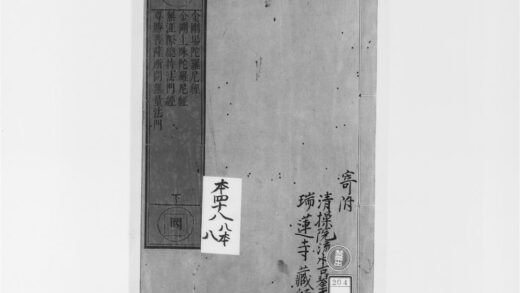 金剛場陀羅尼經
金剛上味陀羅尼經
無涯際總持法門經
尊勝菩薩所問無量法門
下
國
本四十八ノ八本
八
寄附
清操院
瑞蓮寺藏
204